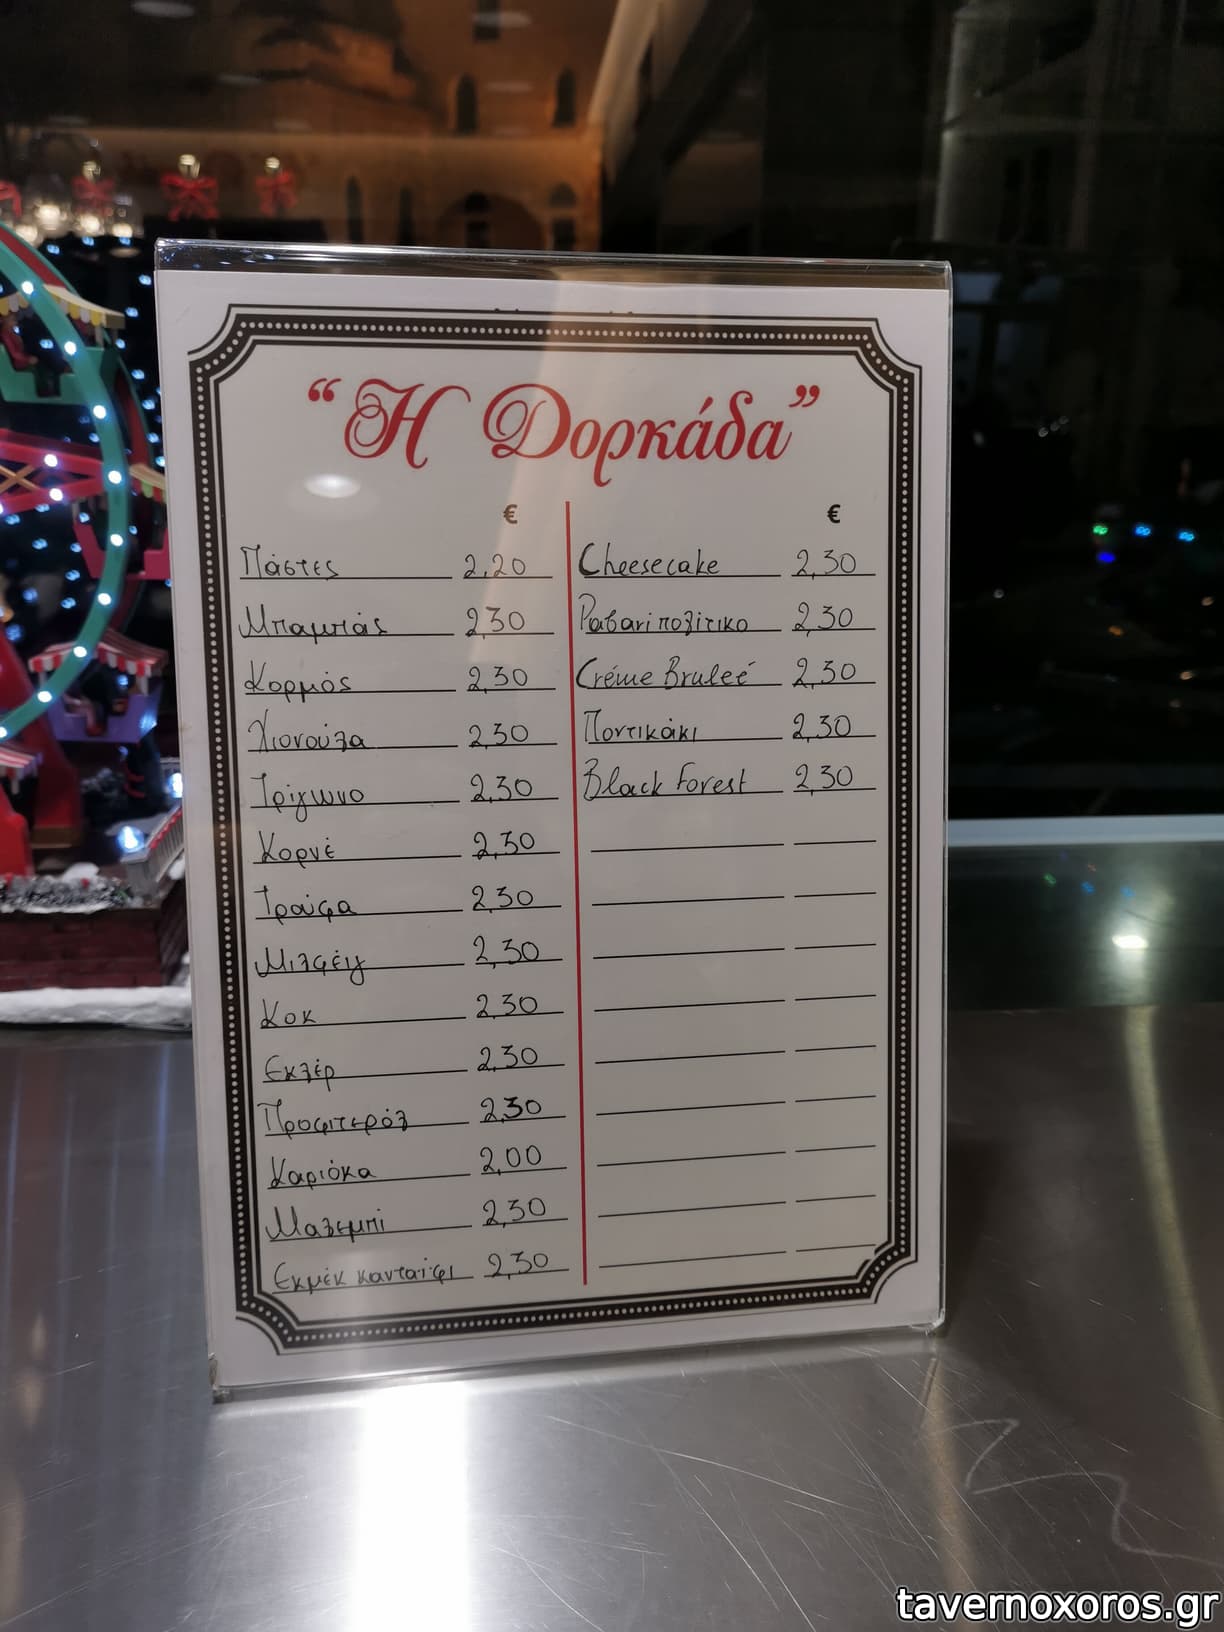 “Η Δορκάδα”
€
Πάστες 2,20
Μπαμπάς 2,30
Κορμός 2,30
Χιονούλα 2,30
Τρίγωνο 2,30
Κορνέ 2,30
Τρούφα 2,30
Μιλφέιγ 2,30
Κοκ 2,30
Εκλέρ 2,30
Προφιτερόλ 2,30
Καριόκα 2,00
Μαλεμπί 2,30
Εκμέκ κανταΐφι 2,30
€
Cheesecake 2,30
Ραβανί πολίτικο 2,30
Créme Bruleé 2,30
Ποντικάκι 2,30
Black Forest 2,30
tavernoxoros.gr